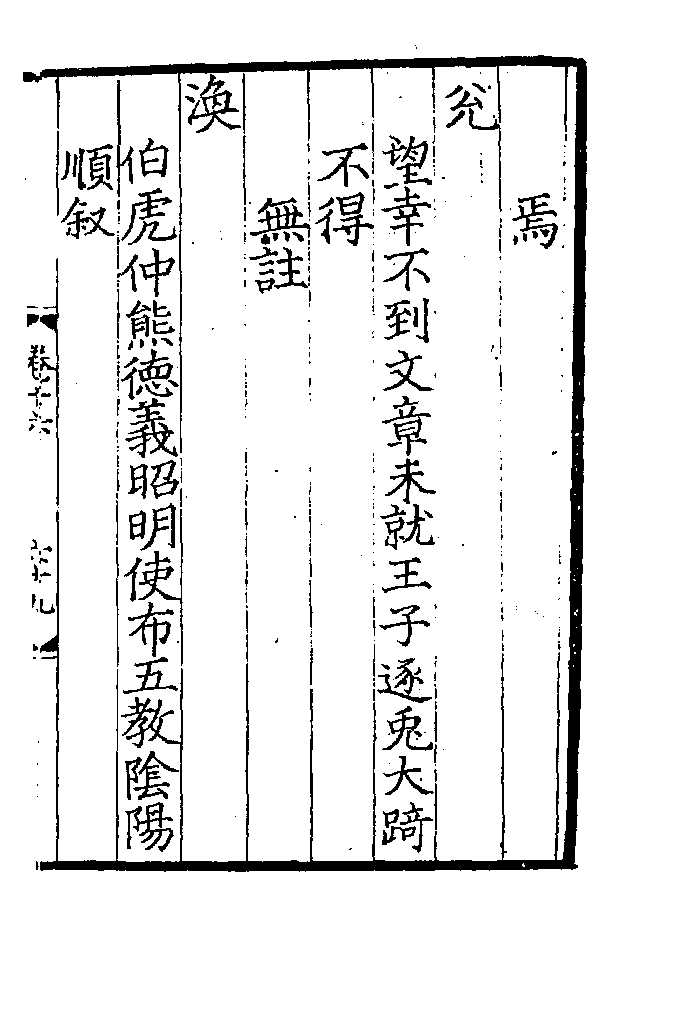 焉
兊
望幸不到文章未就王子逐兎大踦
不得
無註
渙
伯虎仲熊德義昭明使布五教陰陽
順叙
卷十六
六十九